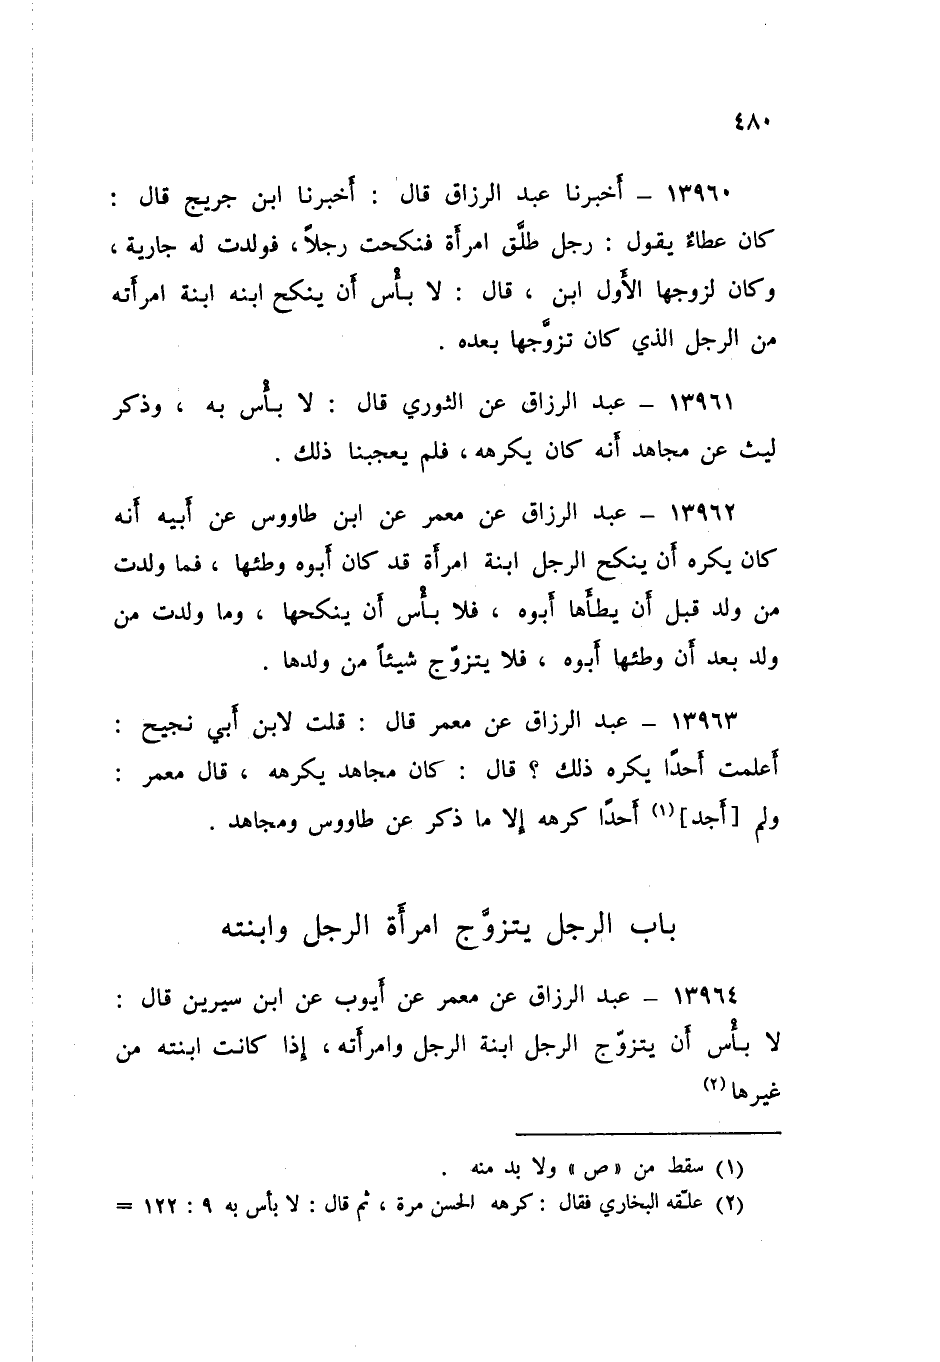 ٤٨٠
١٣٩٦٠ ــ أخبرنا عبد الرزاق قال : أخبرنا ابن جريج قال :
كان عطاءٌ يقول : رجل طلَّق امرأة فنكحت رجلاً ، فولدت له جارية ،
وكان لزوجها الأول ابن ، قال : لا بأْس أن ينكح ابنه ابنة امرأته
من الرجل الذي كان تزوَّجها بعده .
١٣٩٦١ ــ عبد الرزاق عن الثوري قال : لا بأْس به ، وذكر
ليث عن مجاهد أنه كان يكرهه ، فلم يعجبنا ذلك .
١٣٩٦٢ ــ عبد الرزاق عن معمر عن ابن طاووس عن أبيه أنه
كان يكره أن ينكح الرجل ابنة امرأة قد كان أبوه وطئها ، فما ولدت
من ولد قبل أن يطأها أبوه ، فلا بأْس أن ينكحها ، وما ولدت من
ولد بعد أن وطئها أبوه ، فلا يتزوّج شيئاً من ولدها .
١٣٩٦٣ ــ عبد الرزاق عن معمر قال : قلت لابن أبي نجيح :
أعلمت أحدًا يكره ذلك ؟ قال : كان مجاهد يكرهه ، قال معمر :
ولم [أجد](١) أحدًا كرهه إلا ما ذكر عن طاووس ومجاهد .
باب الرجل يتزوَّج امرأة الرجل وابنته
١٣٩٦٤ ــ عبد الرزاق عن معمر عن أيوب عن ابن سيرين قال :
لا بأْس أن يتزوّج الرجل ابنة الرجل وامرأته ، إذا كانت ابنته من
غيرها(٢)
(١) سقط من «ص» ولا بد منه .
(٢) علّقه البخاري فقال : كرهه الحسن مرة ، ثم قال : لا بأس به ٩ : ١٢٢ =